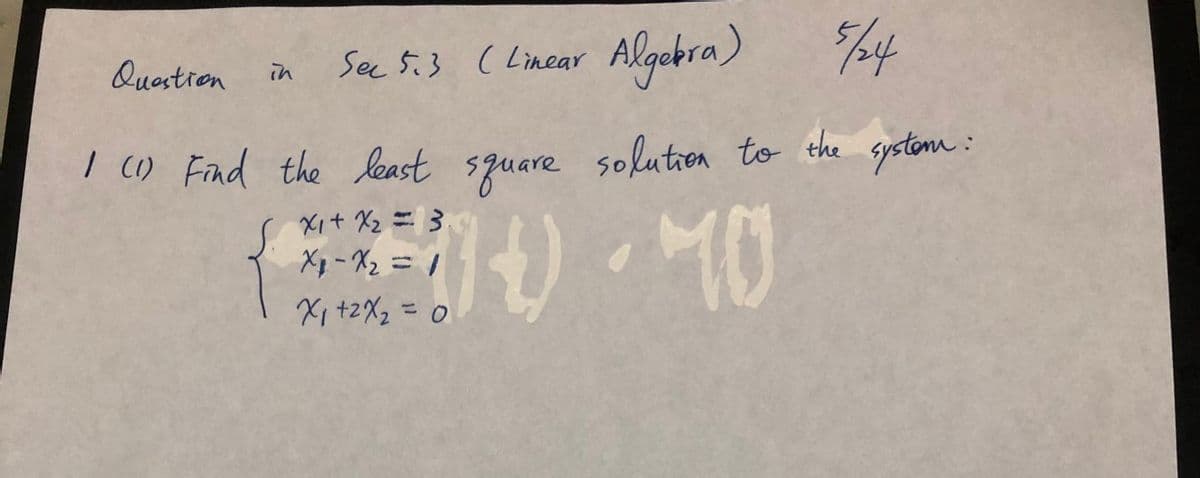 Question in Sec 5.3 ( Linear Algebra) 5/24
1 (1) Find the least square solution to the system :
{ x₁ + x₂ = 3
x₁ - x₂ = 1
x₁ + 2x₂ = 0